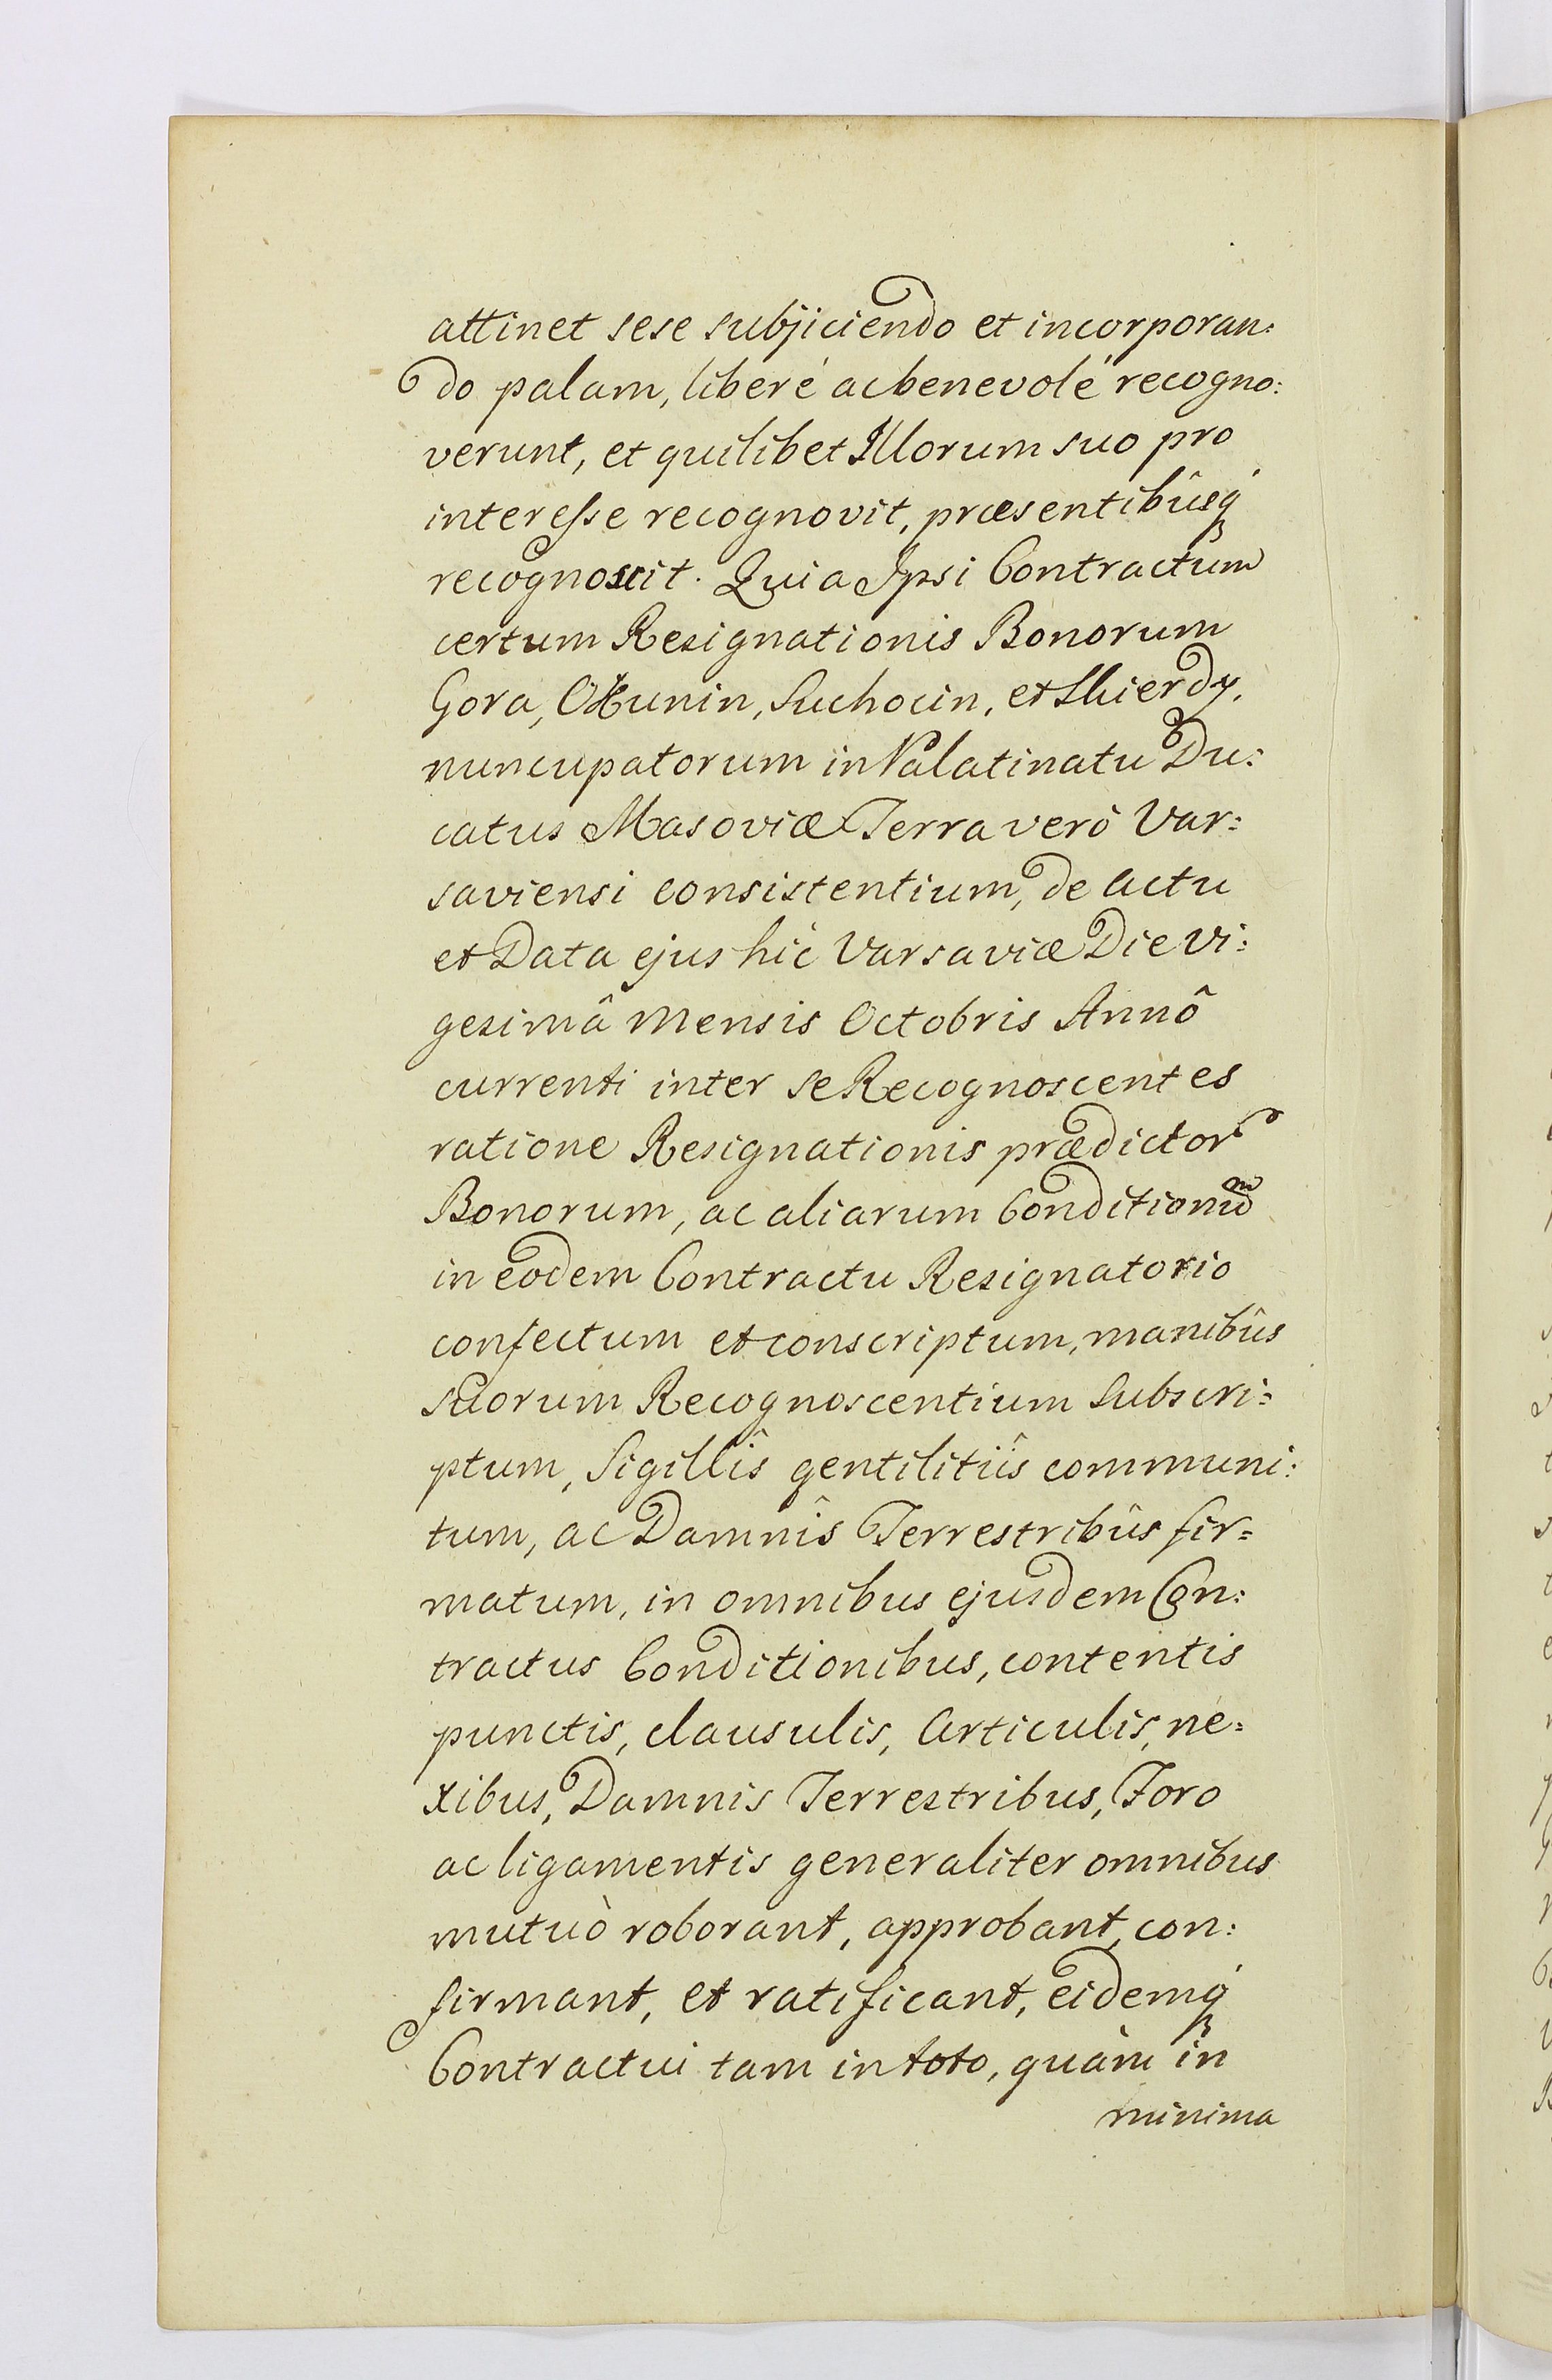 attinet sese subjiciendo et incorporan:
do palam, liberé ac benevolé recogno:
verunt, et quilibet Illorum suo pro
interesse recognovit, præsentibûsq́
recognoscit. Quia Ipsi Contractum
certum Resignationis Bonorum
Gora, Olxunin, Suchocin, et Skierdy,
nuncupatorum in Palatinatu Du:
catus Masoviæ Terra verò Var:
saviensi consistentium, de actu
et Data ejus hic Varsaviæ Die vi:
gesimâ Mensis Octobris Annô
currenti inter se Recognoscentes
ratione Resignationis prædictor
Bonorum, ac aliarum Conditionum
in eodem Contractu Resignatorio
confectum et conscriptum, manibûs
suorum Recognoscentium Subscri:
ptum, Sigillîs gentilitiîs communi:
tum, ac Damnîs Terrestribûs fir=
matum, in omnibus ejusdem Con:
tractus Conditionibus, contentis
punctis, clausulis, Articulis, ne=
xibus, Damnis Terrestribus, Foro
ac ligamentis generaliter omnibus
mutuò roborant, approbant, con:
firmant, et ratificant, eidemq́
Contractui tam in toto, quàm in
minima